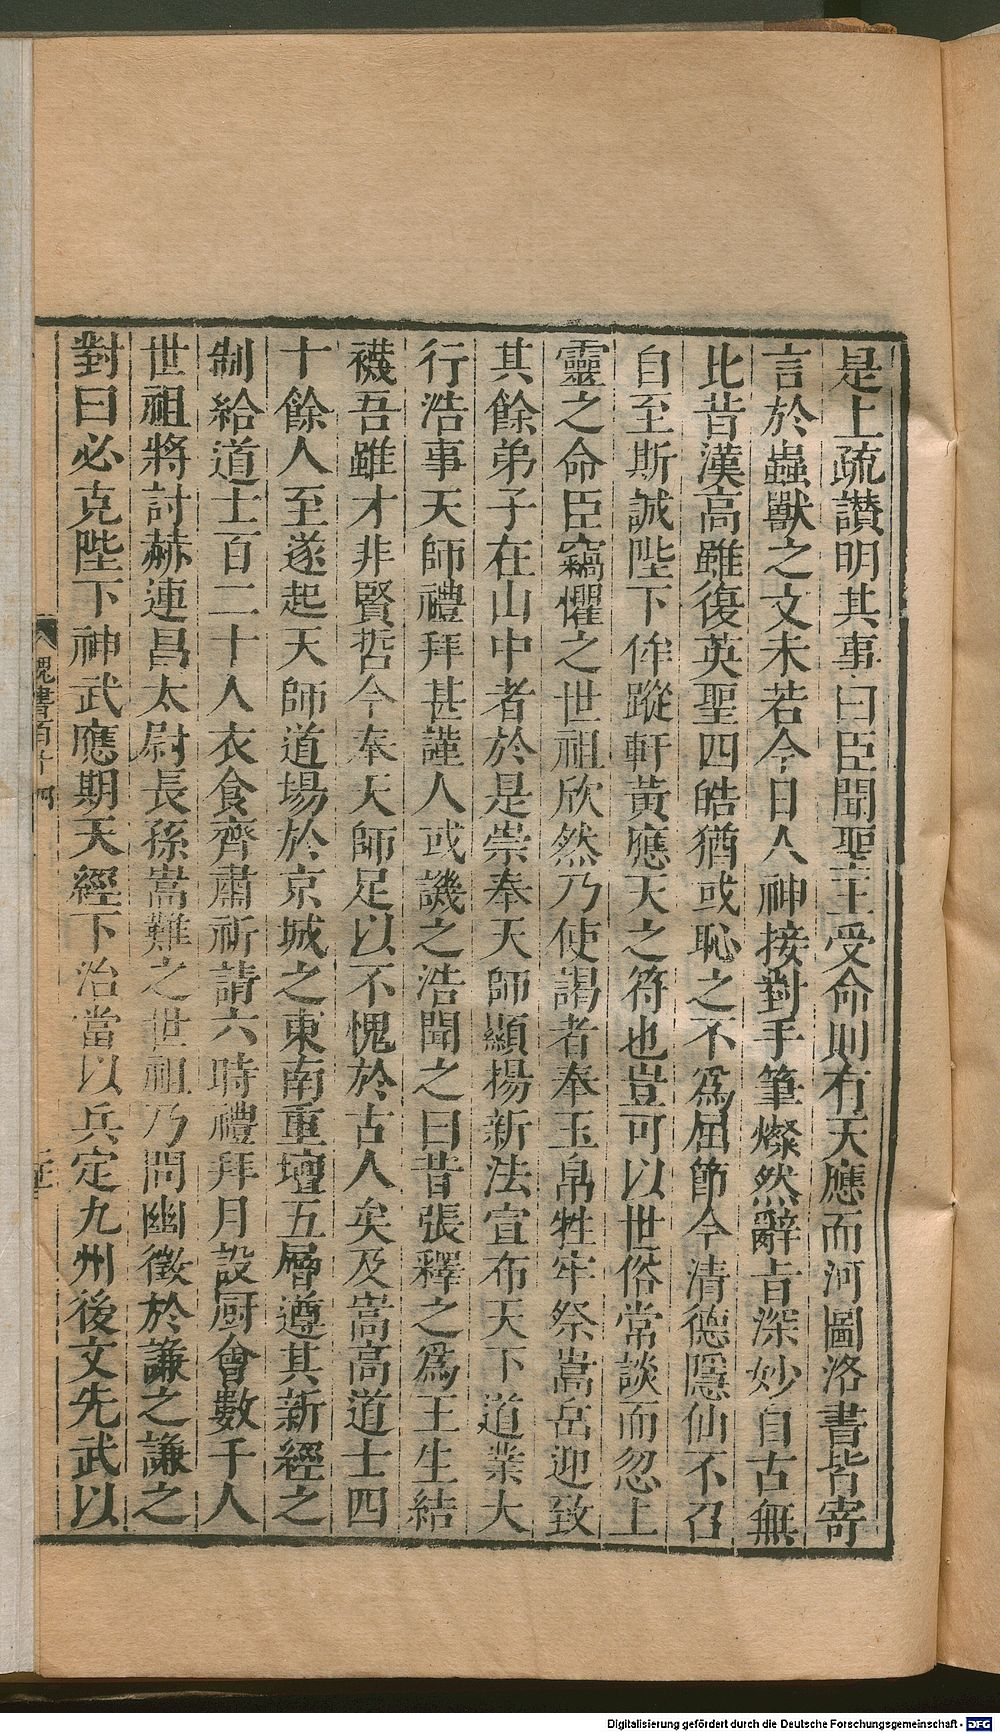 是上疏讃明其事曰臣聞聖王受命則有天應而河圖洛書皆寄
言於蟲獸之文未若今日人神接對手筆燦然辭旨深妙自古無
比昔漢高雖復英聖四皓猶或恥之不爲屈節今清德隱仙不召
自至斯誠陛下侔蹤軒黃應天之符也豈可以世俗常談而忽上
靈之命臣竊懼之世祖欣然乃使謁者奉玉帛牲牢祭嵩岳迎致
其餘弟子在山中者於是崇奉天師顯揚新法宣布天下道業大
行浩事天師禮拜甚謹人或譏之浩聞之曰昔張釋之爲王生結
襪吾雖才非賢哲今奉天師足以不愧於古人矣及嵩高道士四
十餘人至遂起天師道場於京城之東南重壇五層遵其新經之
制給道士百二十人衣食齊肅祈請六時禮拜月設厨會數千人
世祖將討赫連昌太尉長孫嵩難之世祖乃問幽徵於謙之謙之
對曰必克陛下神武應期天經下治當以兵定九州後文先武以
魏書百十四
Digitalisierung gefördert durch die Deutsche Forschungsgemeinschaft - DFG